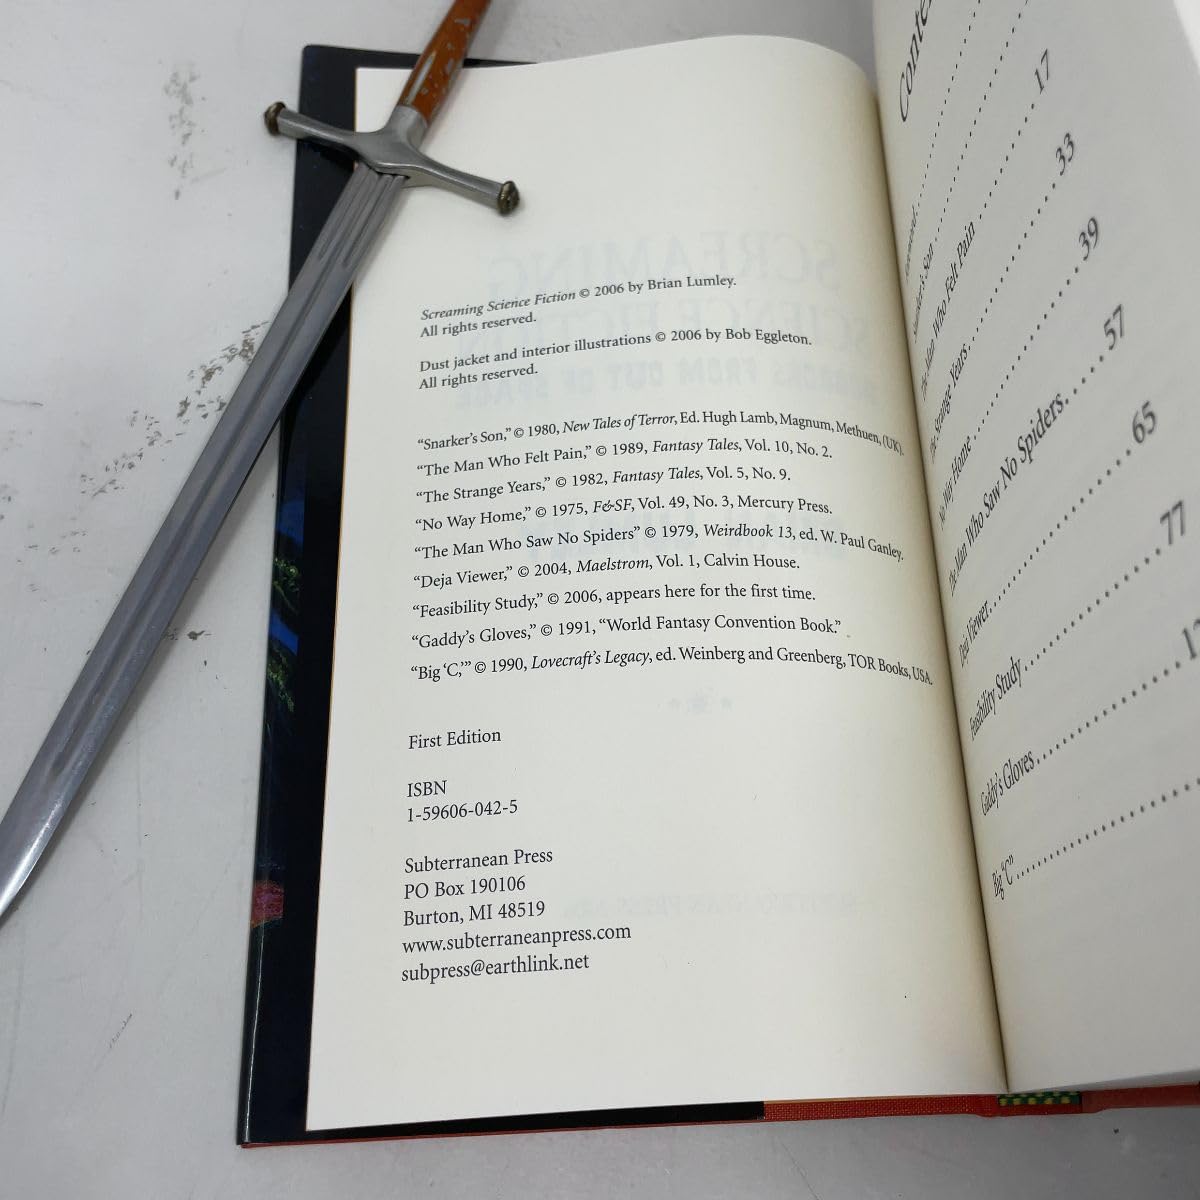 Screaming Science Fiction © 2006 by Brian Lumley.
All rights reserved.
Dust jacket and interior illustrations © 2006 by Bob Eggleton.
All rights reserved.
“Snarker’s Son,” © 1980, New Tales of Terror, Ed. Hugh Lamb, Magnum, Methuen, (UK).
“The Man Who Felt Pain,” © 1989, Fantasy Tales, Vol. 10, No. 2.
“The Strange Years,” © 1982, Fantasy Tales, Vol. 5, No. 9.
“No Way Home,” © 1975, F&SF, Vol. 49, No. 3, Mercury Press.
“The Man Who Saw No Spiders” © 1979, Weirdbook 13, ed. W. Paul Ganley.
“Deja Viewer,” © 2004, Maelstrom, Vol. 1, Calvin House.
“Feasibility Study,” © 2006, appears here for the first time.
“Gaddy’s Gloves,” © 1991, “World Fantasy Convention Book.”
“Big ‘C,’” © 1990, Lovecraft’s Legacy, ed. Weinberg and Greenberg, TOR Books, USA.
First Edition
ISBN
1-59606-042-5
Subterranean Press
PO Box 190106
Burton, MI 48519
www.subterraneanpress.com
subpress@earthlink.net
Son
17
The Man Who Felt Pain
33
The Strange Years
39
No Way Home
57
The Man Who Saw No Spiders
65
Deja Viewer
77
Feasibility Study
Gaddy’s Gloves
Big “C”